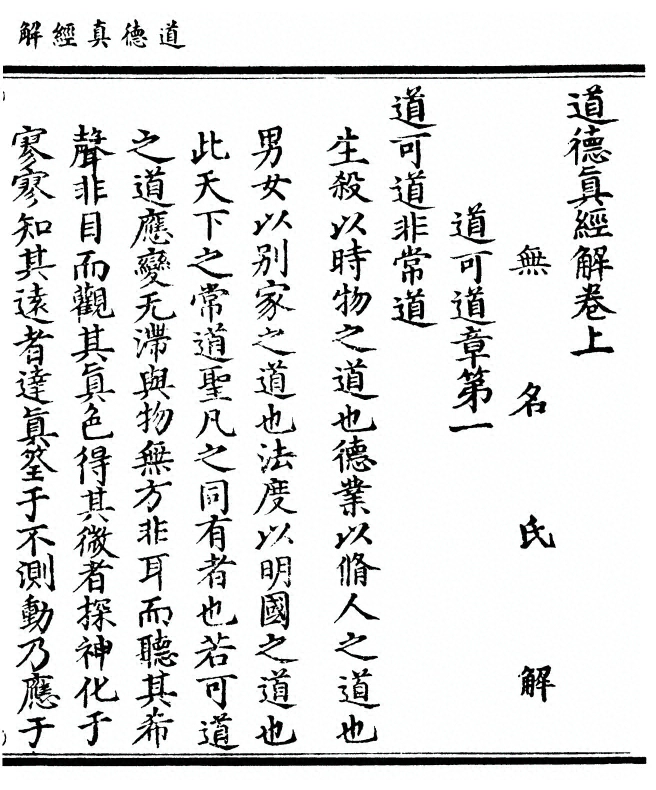 道德真經解
道德眞經解卷上
無名氏解
道可道章第一
道可道非常道
生殺以時物之道也德業以脩人之道也
男女以别家之道也法度以明國之道也
此天下之常道聖凡之同有者也若可道
之道應變无滯與物無方非耳而聽其希
聲非目而觀其眞色得其微者探神化于
寥寥知其遠者達眞筌于不測動乃應于